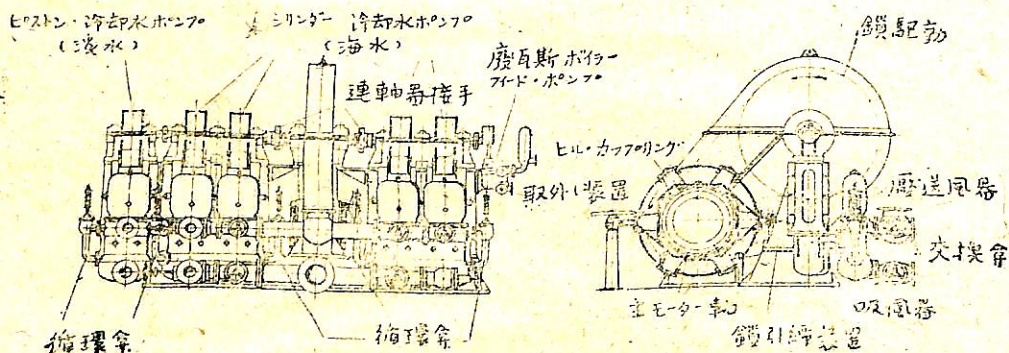 ピストン・冷却水ポンプ
(淡水)
シリンダー 冷却水ポンプ
(海水)
連軸器接手
廢瓦斯ボイラー
フィード・ポンプ
鎖駆動
ヒル・カップリング
取外シ装置
壓送風器
交換弇
吸風器
主モーター軸
鎖引締装置
循環弇
循環弇